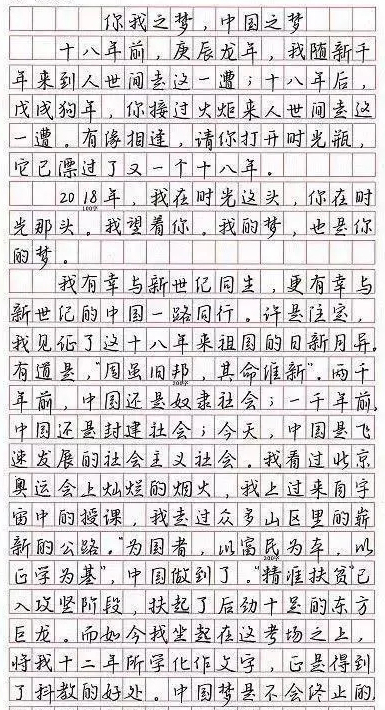 你我之梦，中国之梦
十八年前，庚辰龙年，我随新千
年来到人世间走这一遭；十八年后，
戊戌狗年，你接过火炬来人世间走这
一遭。有缘相逢，请你打开时光瓶，
它已漂过了又一个十八年。
2018年，我在时光这头，你在时
100字
光那头。我望着你。我的梦，也是你
的梦。
我有幸与新世纪同生，更有幸与
新世纪的中国一路同行。许是注定，
我见证了这十八年来祖国的日新月异。
有道是，“周虽旧邦，其命维新”。两千
200字
年前，中国还是奴隶社会；一千年前，
中国还是封建社会；今天，中国是飞
速发展的社会主义社会。我看过北京
奥运会上灿烂的烟火，我上过来自宇
宙中的授课，我走过众多山区里的崭
新的公路。“为国者，以富民为本，以
300字
正学为基”，中国做到了。“精准扶贫”已
入攻坚阶段，扶起了后劲十足的东方
巨龙。而如今我坐起在这考场之上，
将我十二年所学化作文字，正是得到
了科教的好处。中国梦是不会终止的，